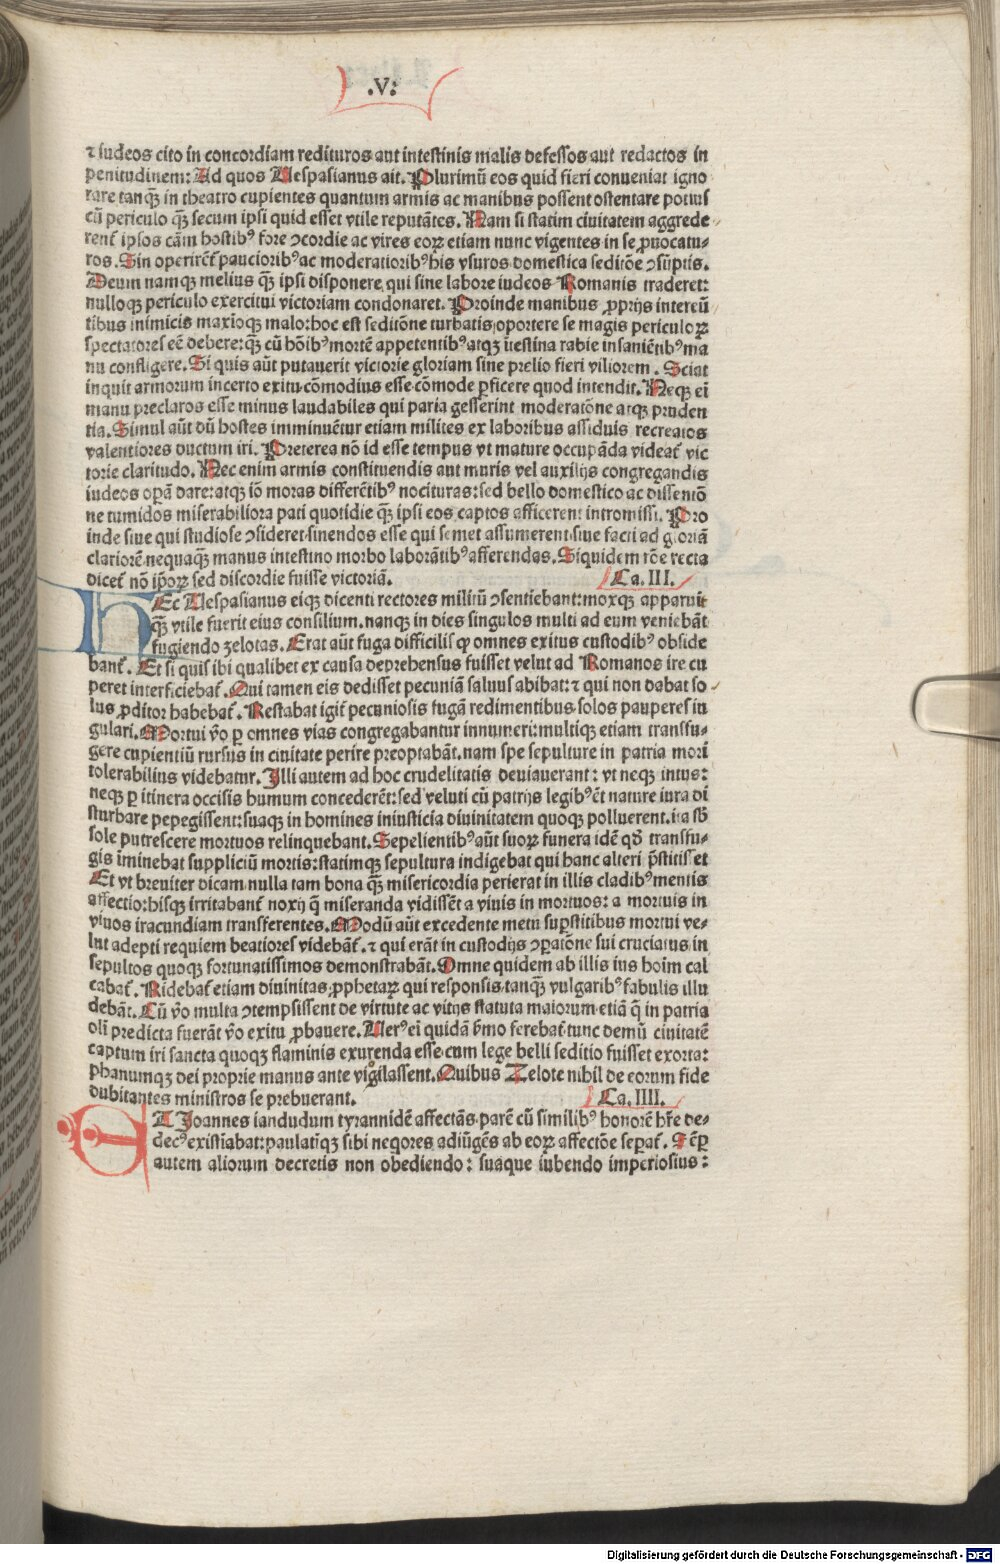 .V:
⁊ iudeos cito in concordiam redituros aut intestinis malis defessos aut redactos in
penitudinem: Ad quos Uespasianus ait. Plurimū eos quid fieri conueniat igno
rare tanqꝫ in theatro cupientes quantum armis ac manibus possent ostentare potius
cū periculo qꝫ secum ipsi quid esset vtile reputātes. Nam si statim ciuitatem aggrede
rent̄ ipsos cām hostibꝰ fore ↄcordie ac vires eoꝝ etiam nunc vigentes in se ꝓuocatu-
ros. Sin operirēt̄ pauci oribꝰ ac moderatioribꝰ his vsuros domestica seditōe ↄsūptis.
Deum namqꝫ melius qꝫ ipsi disponere, qui sine labore iudeos Romanis traderet:
nulloqꝫ periculo exercitui victoriam condonaret. Proinde manibus ꝓprijs intereū
tibus inimicis maxioqꝫ malo: hoc est seditōne turbatis, oportere se magis periculoꝝ
spectatores eē debere: qꝫ cū hōibꝰ mortē appetentibꝰ atqꝫ ītestina rabie insaniētibꝰ ma
nu confligere. Si quis aūt putauerit victorie gloriam sine prelio fieri viliorem. Sciat
inquit armorum incerto exitu cōmodius esse cōmode ꝑficere quod intendit. Neqꝫ ei
manu preclaros esse minus laudabiles qui paria gesserint moderatōne atqꝫ pruden
tia. Simul aūt dū hostes imminuētur etiam milites ex laboribus assiduis recreatos
valentiores ductum iri. Preterea nō id esse tempus vt mature occupāda videat̄ vic
torie claritudo. Nec enim armis constituendis aut muris vel auxilijs congregandis
iudeos oꝑā dare: atqꝫ iō moras differētibꝰ nocituras: sed bello domestico ac dissentō
ne tumidos miserabiliora pati quotidie qꝫ ipsi eos captos afficerent intromissi. Pro
inde siue qui studiose ↄsideret sinendos esse qui semet assumerent: siue facti ad gloriā
clariorē nequaqꝫ manus intestino morbo laborātibꝰ afferendas. Siquidem rōe recta
dicet̄ nō ip̄oꝝ sed discordie fuisse victoriā. Ca. III.
HEc Uespasianus eiqꝫ dicenti rectores militū ↄsentiebant: moxqꝫ apparuit
qꝫ vtile fuerit eius consilium. nanqꝫ in dies singulos multi ad eum veniebāt
fugiendo zelotas. Erat aūt fuga difficilis ꝙ omnes exitus custodibꝰ obside
bant̄. Et si quis ibi qualibet ex causa deprehensus fuisset velut ad Romanos ire cu
peret interficiebat̄. Qui tamen eis dedisset pecuniā saluus abibat: ⁊ qui non dabat so
lus ꝓditor habebat̄. Restabat igit̄ pecuniosis fugā redimentibus, solos pauperes iu
gulari. Mortui v̄o ꝑ omnes vias congregabantur innumeri: multiqꝫ etiam transfu-
gere cupientiū rursus in ciuitate perire preoptabāt. nam spe sepulture in patria mori
tolerabilius videbatur. Illi autem ad hoc crudelitatis deuiauerant: vt neqꝫ intus:
neqꝫ ꝑ itinera occisis humum concederēt: sed veluti cū patrijs legibꝰ ēt nature iura di
sturbare pepegissent: suaqꝫ in homines iniusticia diuinitatem quoqꝫ polluerent. ita sb̄
sole putrescere mortuos relinquebant. Sepelientibꝰ aūt suoꝝ funera idē qd̄ transfu-
gis īminebat suppliciū mortis: statimqꝫ sepultura indigebat qui hanc alteri p̄stitisset
Et vt breuiter dicam nulla tam bona qꝫ misericordia perierat in illis cladibꝰ mentis
affectio: hisqꝫ irritabant̄ noxij q̄ miseranda vidissēt a viuis in mortuos: a mortuis in
viuos iracundiam transferentes. Modū aūt excedente metu suꝑstitibus mortui ve-
lut adepti requiem beatiores videbāt̄. ⁊ qui erāt in custodijs ↄꝑatōne sui cruciatus in
sepultos quoqꝫ fortunatissimos demonstrabāt. Omne quidem ab illis ius hoim cal
cabat̄. Ridebat̄ etiam diuinitas, ꝓphetaꝝ qui responsis, tanqꝫ vulgaribꝰ fabulis illu
debāt. Cū v̄o multa ↄtempsissent de virtute ac vitijs statuta maiorum etiā q̄ in patria
oli predicta fuerāt v̄o exitu ꝓbauere. Uerꝰ ei quidā ẜmo ferebat̄ tunc demū ciuitatē
captum iri sancta quoqꝫ flaminis exurenda esse cum lege belli seditio fuisset exorta:
phanumqꝫ dei proprie manus ante vigilassent. Quibus Zelote nihil de eorum fide
dubitantes ministros se prebuerant. Ca. IIII.
ET Joannes iandudum tyrannidē affectās, parē cū similibꝰ honorē hr̄e de-
decꝰ existiabat: paulatiqꝫ sibi neqores adiūgēs ab eoꝝ affectōe sepat̄. Sēꝑ
autem aliorum decretis non obediendo: suaque iubendo imperiosius:
Digitalisierung gefördert durch die Deutsche Forschungsgemeinschaft - DFG